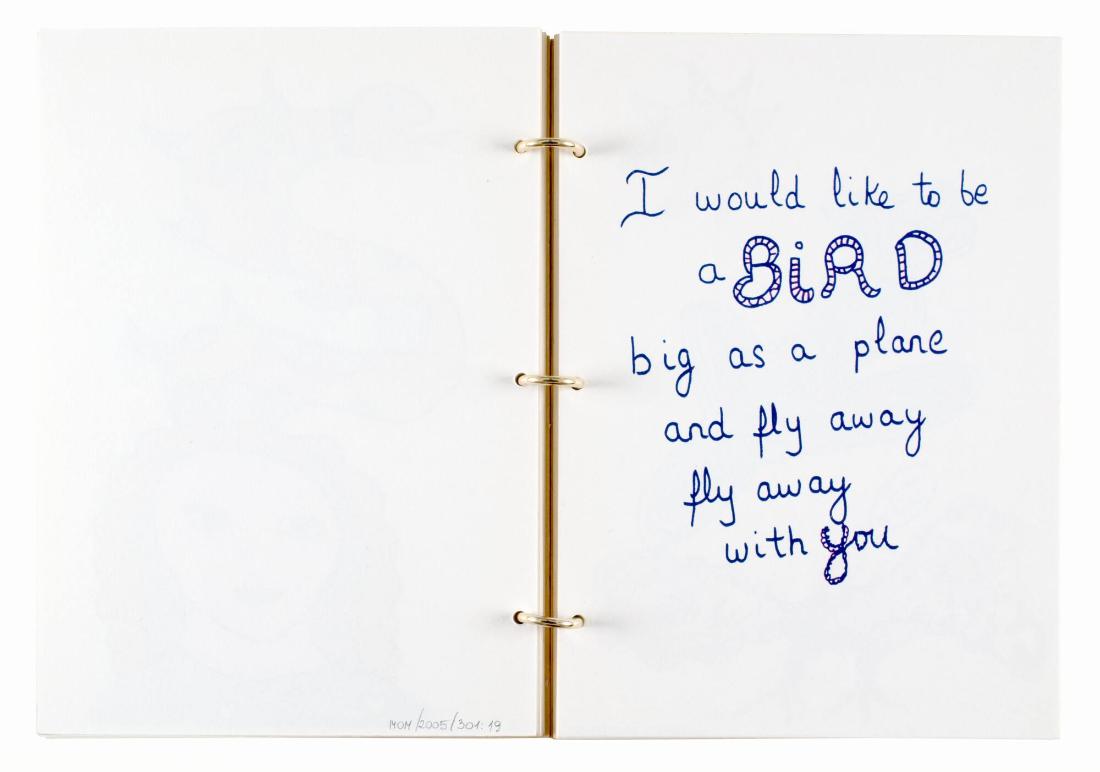 MOM/2005/301:19
I would like to be
a BiRD
big as a plane
and fly away
fly away
with you